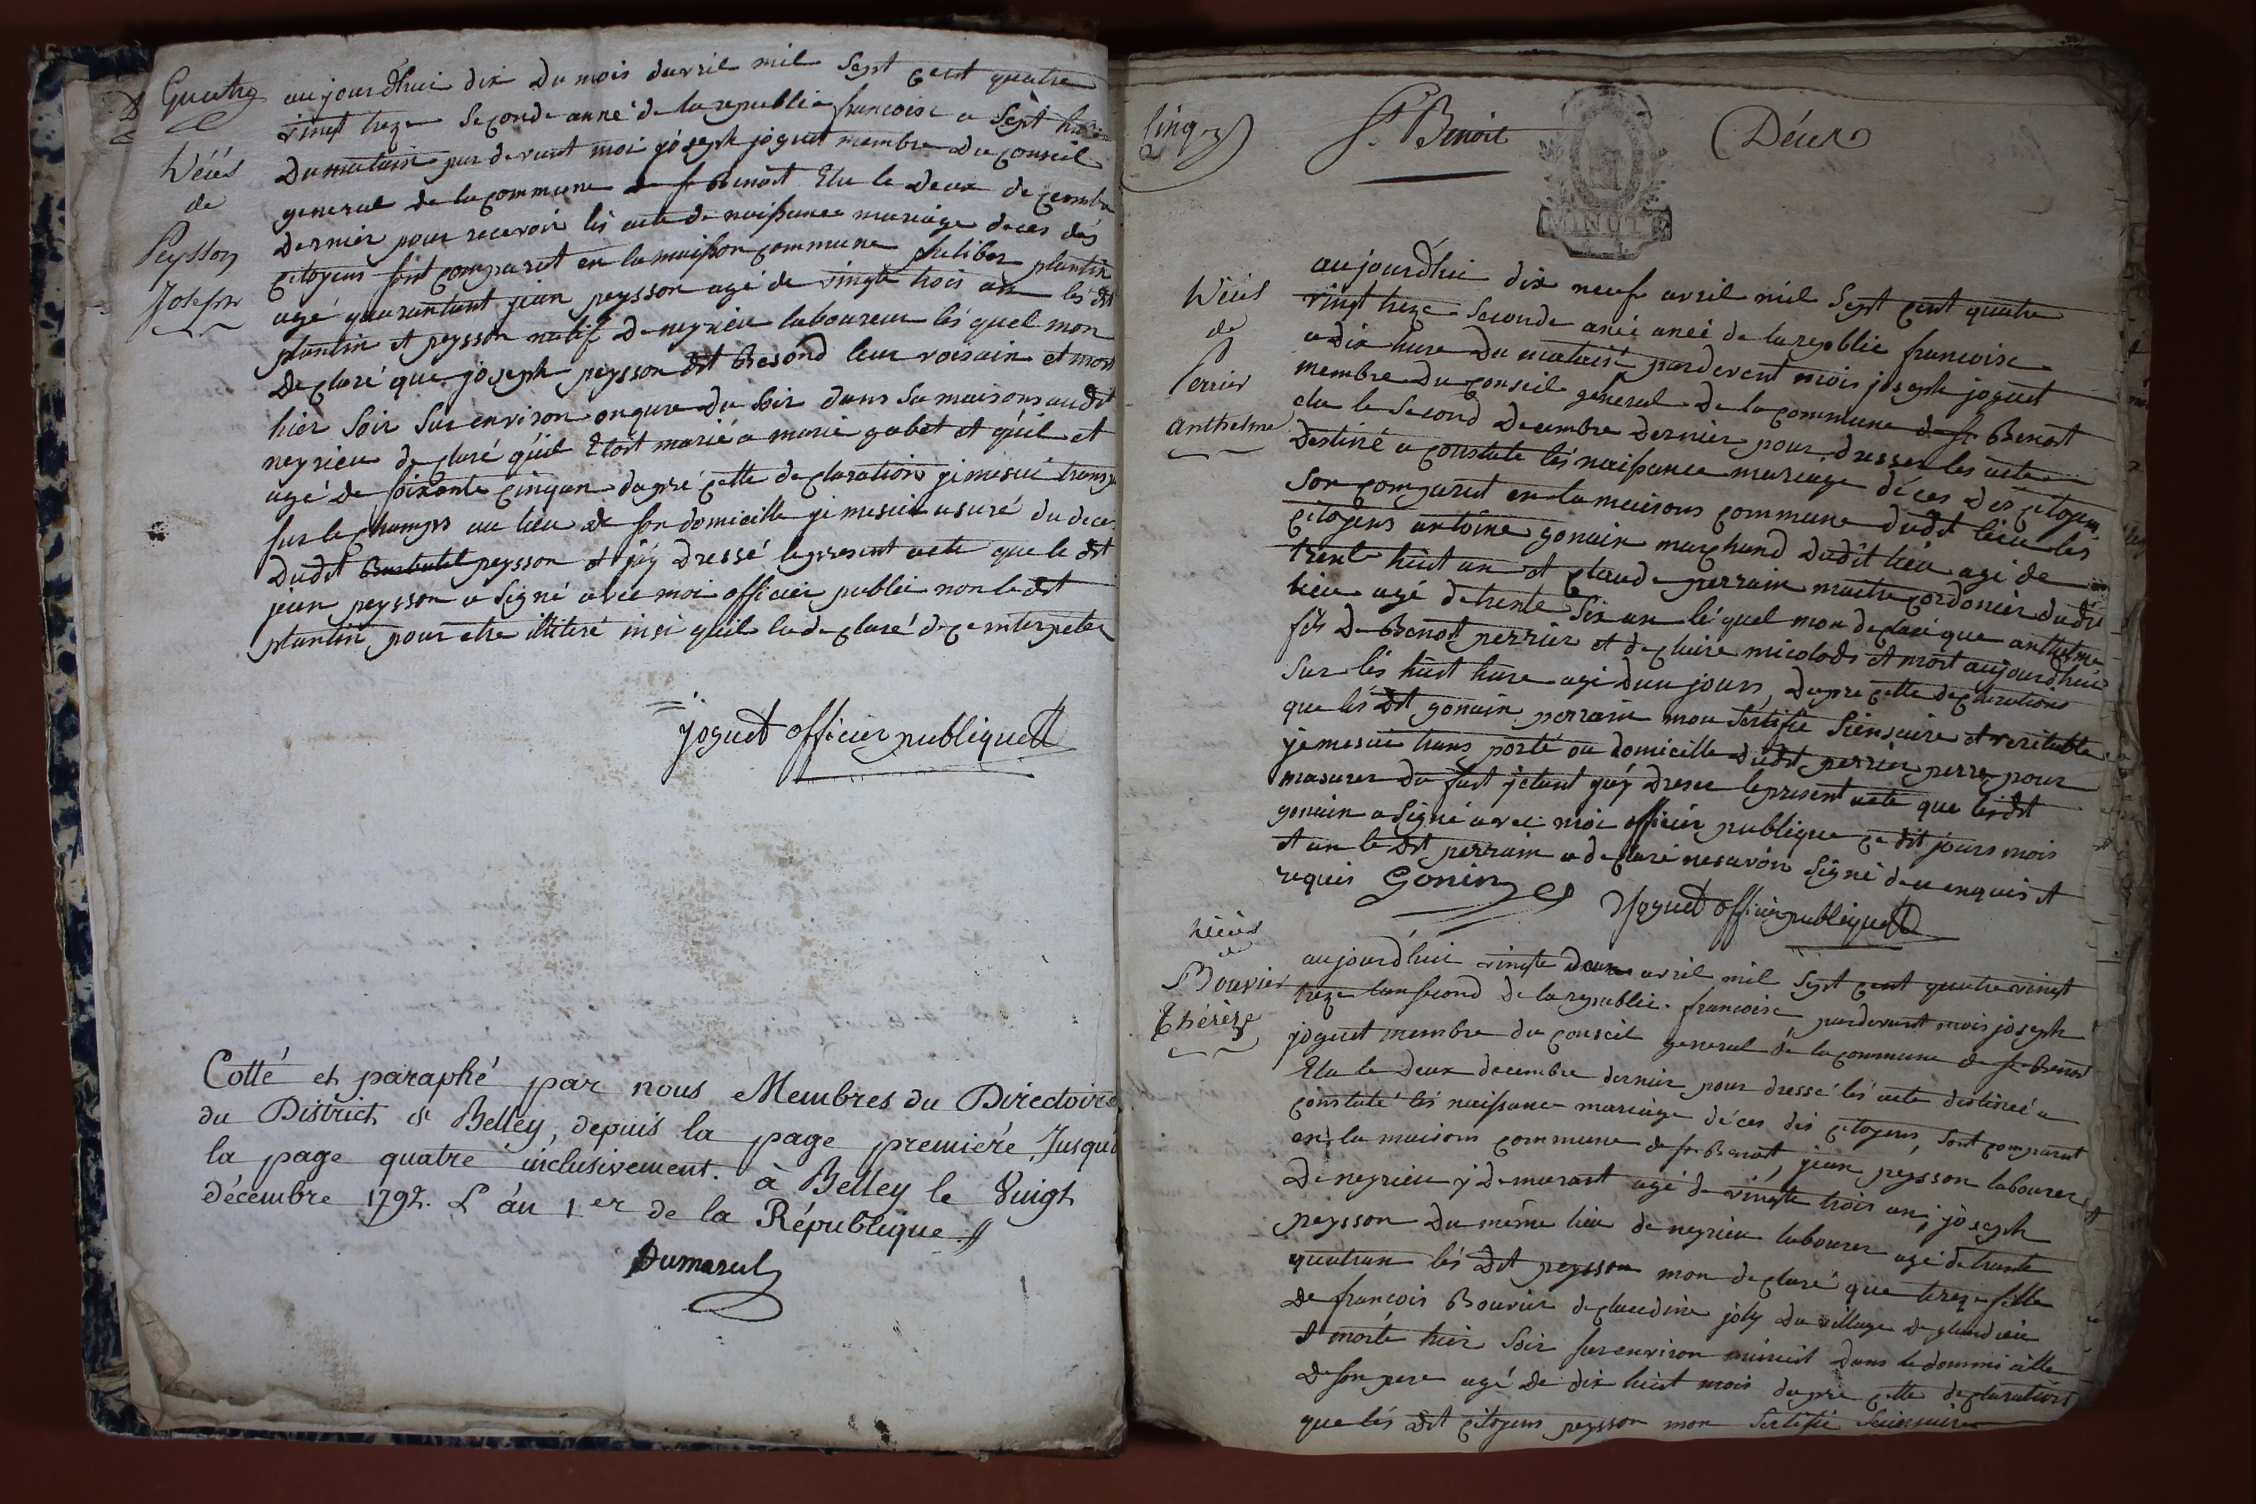 Quatre
Décés
de
Peysson
Joseph
aujourdhui dix du mois davril mil sept cent quatre
vingt treze seconde anné de la republic francoise a sept hure
du matain par devant moi joseph joguet membre du conseil
general de la commune de st Benoit Elu le deux decembre
dernier pour recevoir lés acte de naissance mariage deces dés
citoyens sont comparut en la maisson commune philiber plantin
agé quarantant jean peysson agé de vingte trois an lés dit
plantin et peysson natif de neyrieu laboureur lés quel mon
declaré que joseph peysson dit Besond leur voisain et mort
hier soir sur environ onzure du soir dans sa maisons audit
neyrieu declaré quil Etoit marié a marie gabet et quil et
agé de soixante cinq an dapré cette declaration je mesui transp
sur le champs au lieu de son domicille je mesui asuré du deces
dudit peysson et jéy dressé le present acte que le dit
jean peysson a signé avec moi officier public non le dit
plantin pour etre illiteré insi quil la declaré de ce interpeler
joguet officier publiquett
Cotté et paraphé par nous Membres du Directoire
du District de Belley, depuis la page premiére, Jusqu'à
la page quatre inclusivement. à Belley le Vuigt
décembre 1792. L'án 1.er de la République.//
Dumarest
Cinq
St. Benoit
Décer
MINUTE
Décés
de
Perrier
anthelme
aujourdhui dix neuf avril mil sept cent quatre
vingt treze seconde anée aneé de la republic francoise
a dix hure du mataise pardevent mois joseph joguet
membre du conseil general de la commune de st Benoit
elu le second decembre dernier pour dresser les acte
destiné a constate lés naissance mareage déces des citoyens
son comparut en la maisons commune dudit lieu lés
citoyens antoine gonain marchand dudit lieu agé de
trente huit an et claude perrain maitre cordonier dudit
lieu agé de trente six an lé quel mon declaré que anthelme
fils de Benoit perrier et de claire micolods et mort aujourdhui
sur lés huit hure agé dun jours, dapre cette declarations
que lés dit gonain perrain mon sertifie siensaire et veritable
je mesui trans porté ou domicille dudit perrier perre pour
masurer du fait jétant jéy dresse le present acte que le dit
gonain a signé avec moi officier publique ce dit jours mois
et an le dit perrain a declaré nesavoir signé de ce enquis et
requis Gonin
Joguet officier publiquett
Décés
de
Bouvier
Thérèze
aujourdhui vingte deux avril mil sept cent quatre vingt
treze lan second de la republic francoise pardevant mois joseph
joguet membre du conseil general de la commune de st Benoit
Elu le deux decembre dernier pour dressé lés acte destineé a
constaté lés naissance mareage déces dés citoyens, sont comparut
en la maisons commune de st Benoit, jean peysson labourer
de neyrieu y demurant agé de vingte trois an, joseph
peysson du même lieu de neyrieu labourer agé de trante
quatran lés dit peysson mon declaré que tereze fille
de francois Bouvier de claudine joly du village de glandieu
et morte hier soir sur environ minuit dans le dommicille
de son pere agé de dix huit mois dapre cette declarations
que lés dit citoyens peysson mon sertifié siensaire